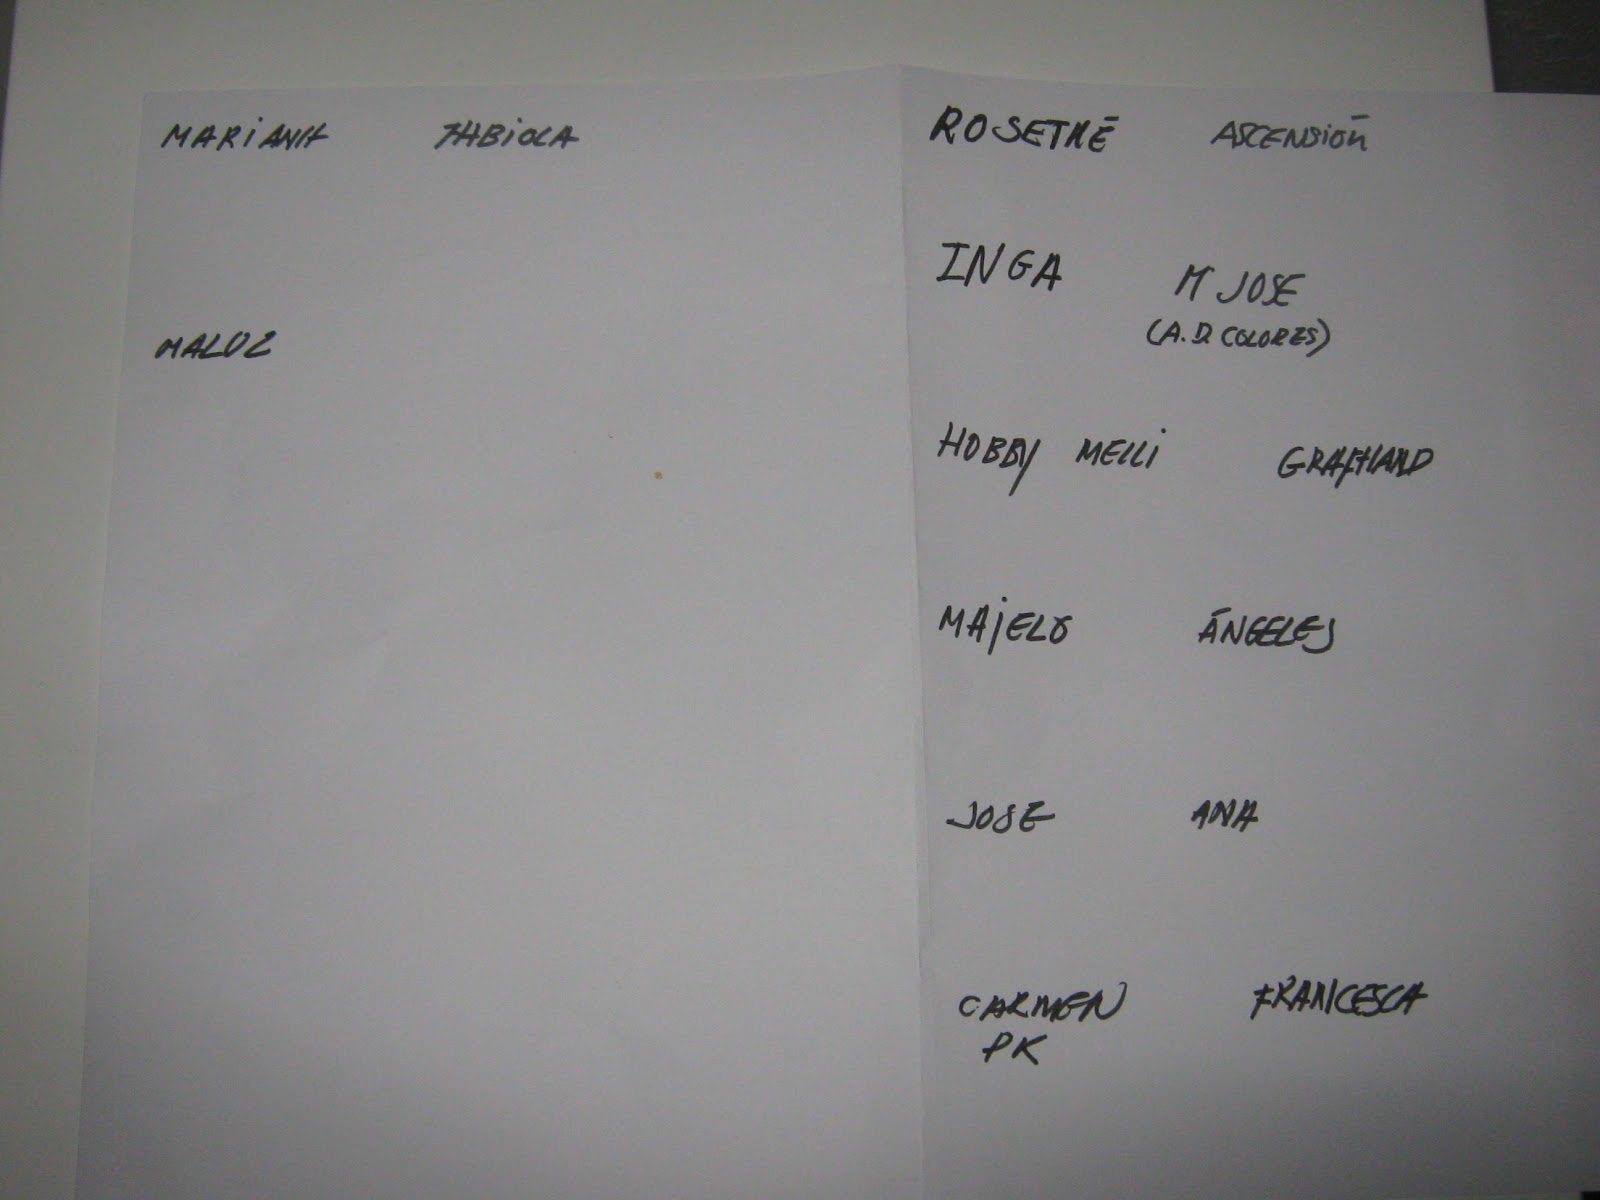 MARIANA FABIOLA
MALOZ
ROSETRÉ ASCENSIÓN
INGA M JOSE
(A.D. COLORES)
HOBBY MELLI GRAFHAND
MAJELO ÁNGELES
JOSE ANA
CARMEN FRANCESCA
PK